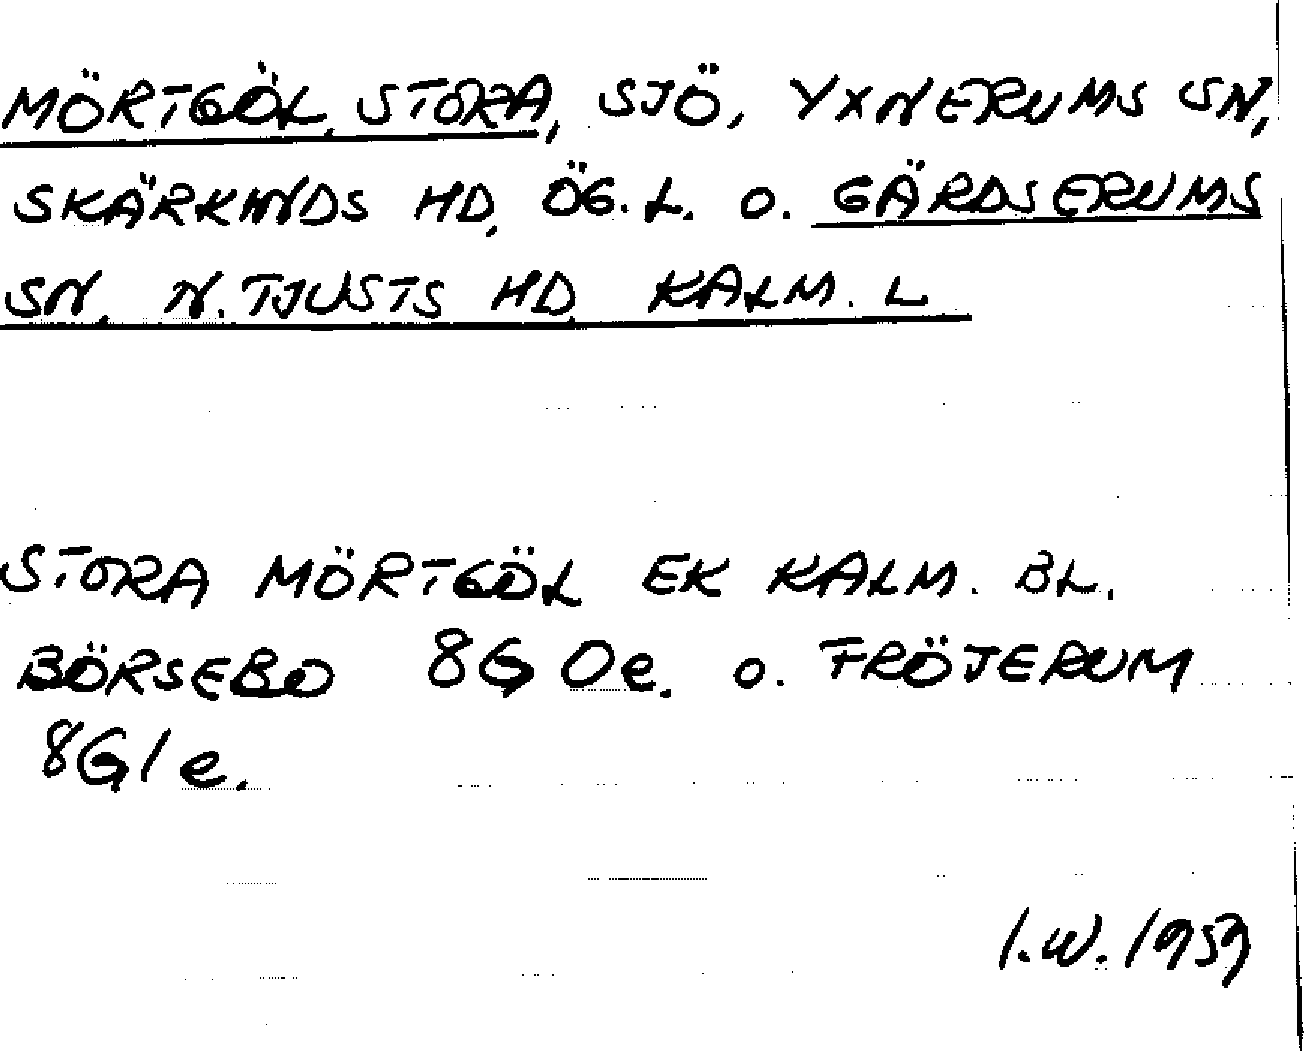 MÖRTGÖL, STORA, SJÖ, YXNERUMS SN,
SKÄRKINDS HD, ÖG. L. O. GÄRDSERUMS
SN, N. TJUSTS HD KALM. L
STORA MÖRTGÖL EK KALM. BL.
BÖRSEBO 8G 0e. O. FRÖJERUM
8G 1e.
I.W. 1959